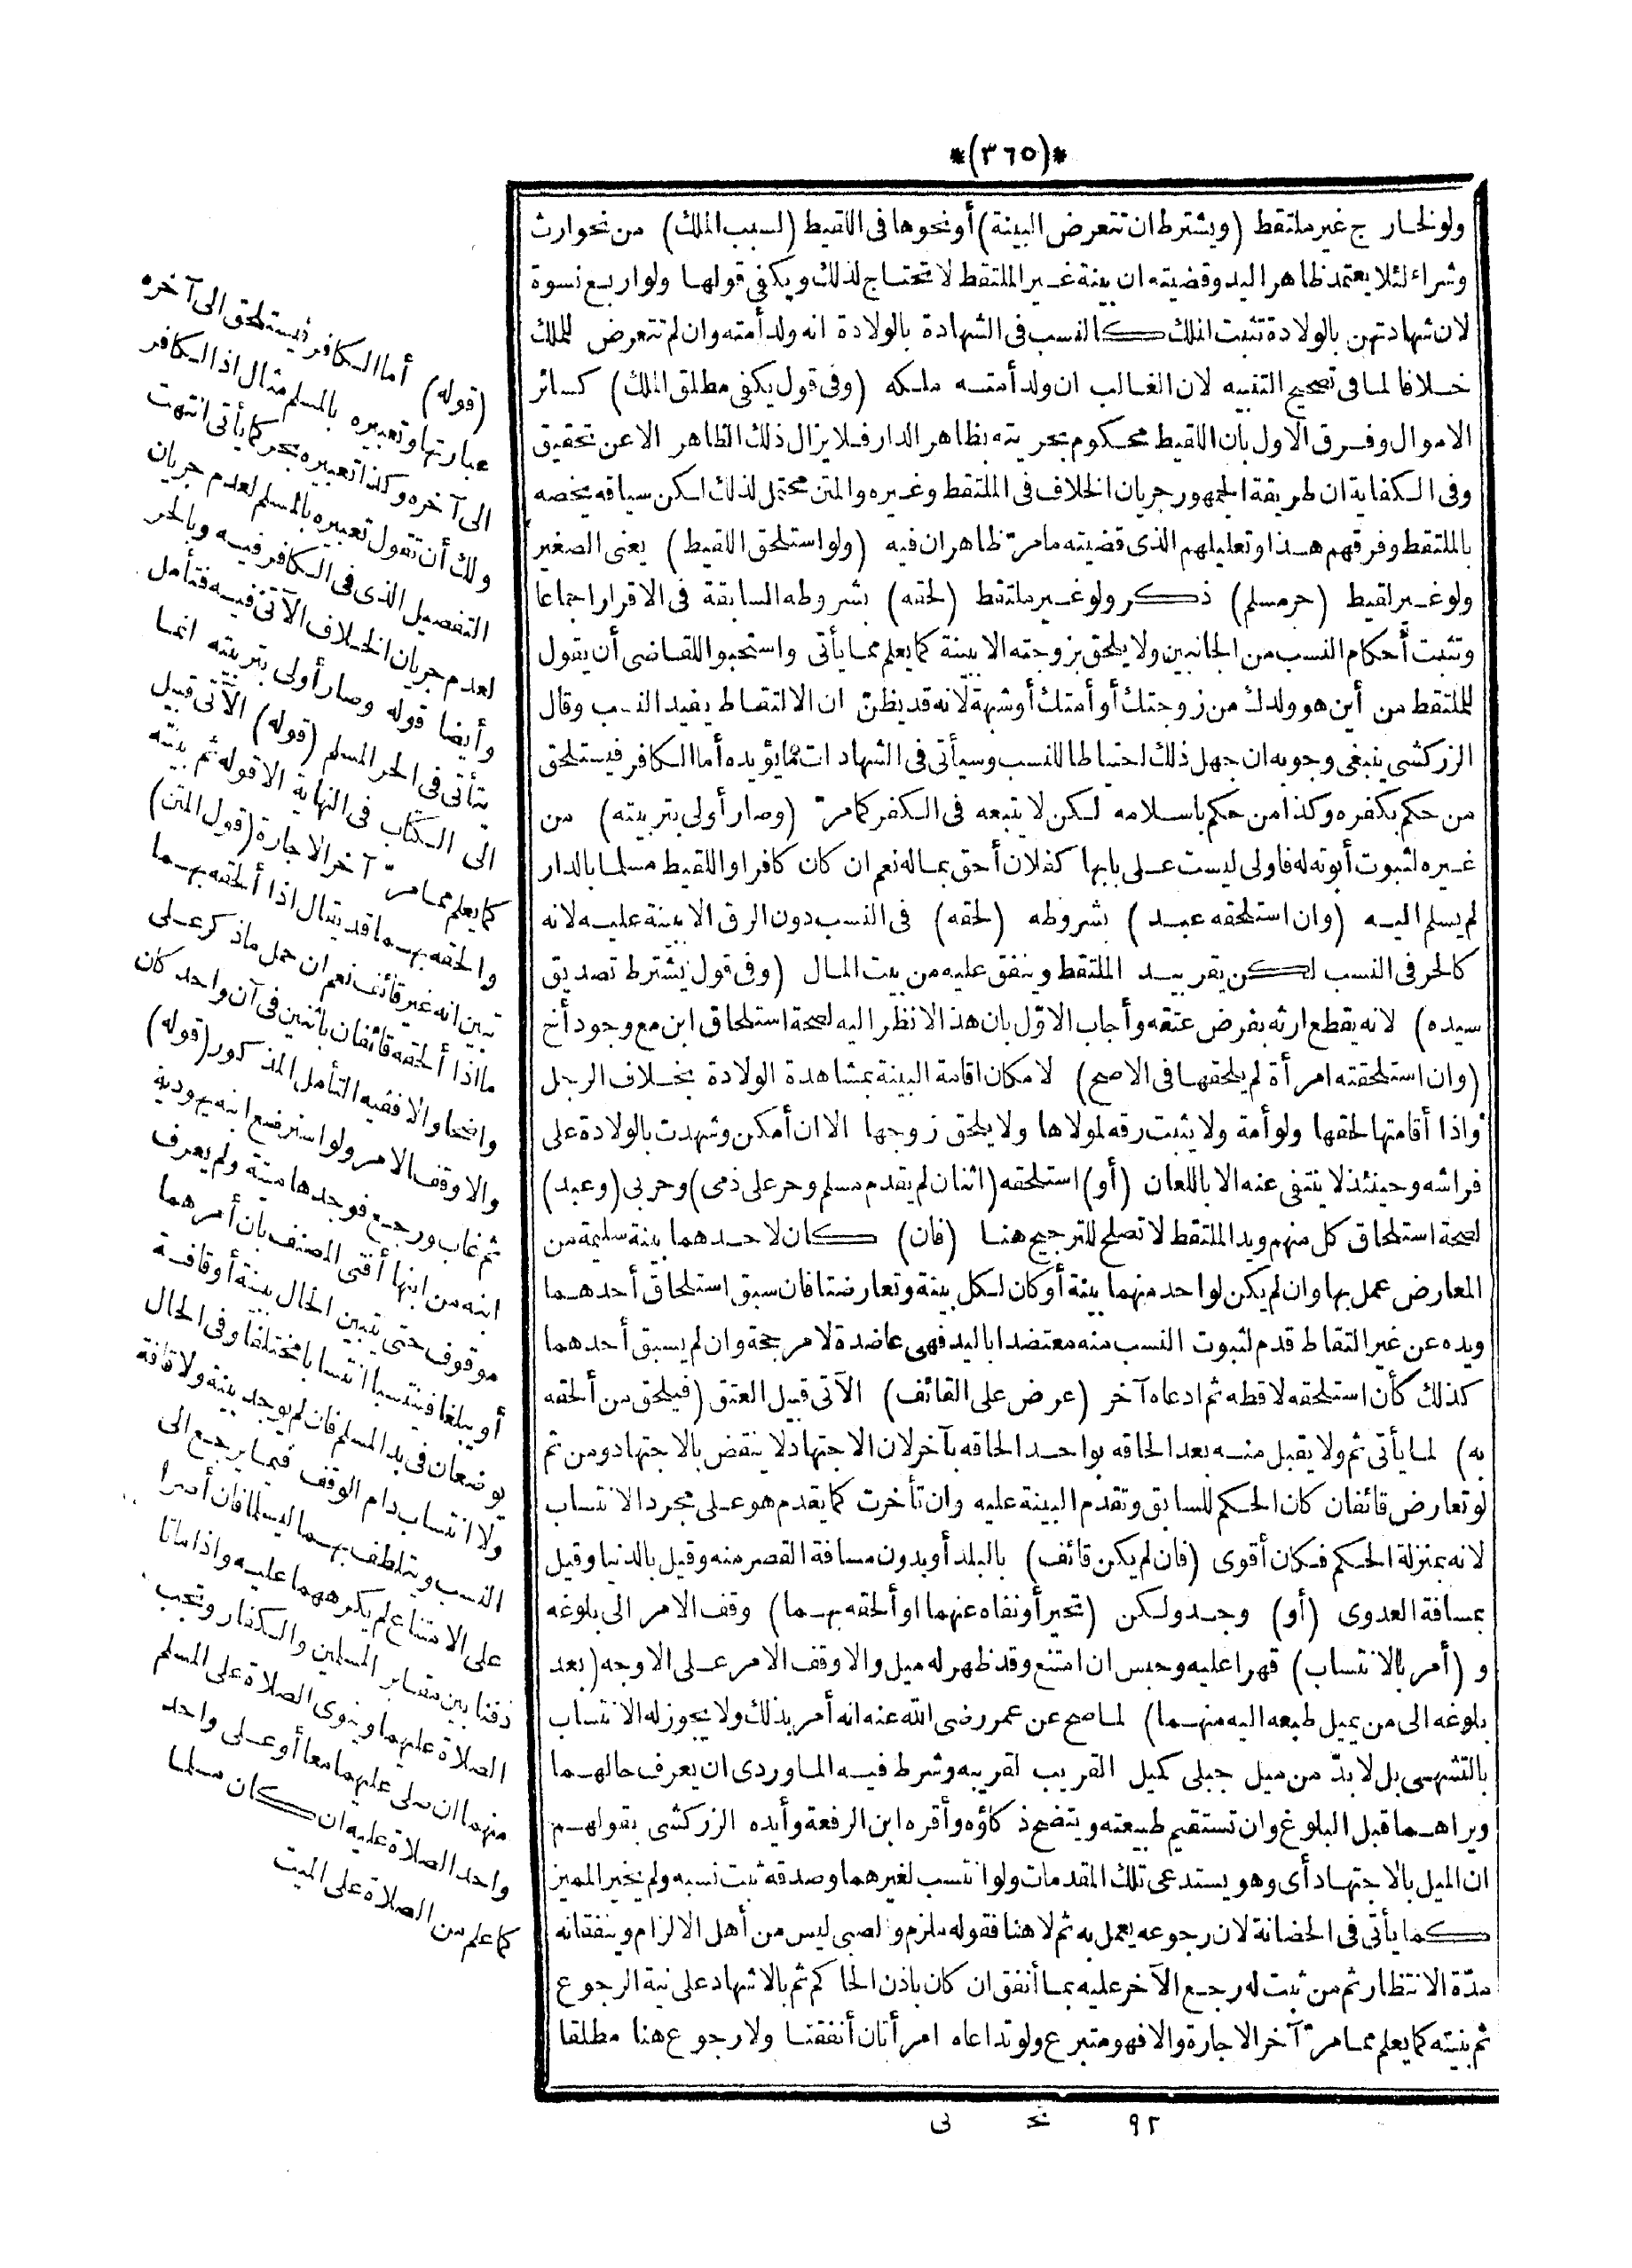 *(٣٦٥)*
ولو لخارج غير ملتقط (ويشترط ان تتعرض البينة) أو نحوها فى اللقيط (لسبب الملك) من نحو ارث
وشراء لئلا يعتمد ظاهر اليد وقضيته ان بينة غير الملتقط لا تحتاج لذلك ويكفى قولها ولو اربع نسوة
لان شهادتهن بالولادة تثبت الملك كالنسب فى الشهادة بالولادة انه ولد أمته وان لم تتعرض للملك
خلافا لما فى تصحيح التنبيه لان الغالب ان ولد أمته ملكه (وفى قول يكفى مطلق الملك) كسائر
الاموال وفرق الاول بأن اللقيط محكوم بحريته بظاهر الدار فلا يزال ذلك الظاهر الا عن تحقيق
وفى الكفاية ان طريقة الجمهور جريان الخلاف فى الملتقط وغيره والمتن محتمل لذلك لكن سياقه يخصه
بالملتقط وفرقهم هذا وتعليلهم الذى قضيته ما مرّ ظاهران فيه (ولو استلحق اللقيط) يعنى الصغير
ولو غير لقيط (حر مسلم) ذكر ولو غير ملتقط (لحقه) بشروطه السابقة فى الاقرار اجماعا
وتثبت أحكام النسب من الجانبين ولا يلحق بزوجته الا ببينة كما يعلم مما يأتى واستحبوا للقاضى أن يقول
للملتقط من أين هو ولدك من زوجتك أو أمتك أو شبهة لانه قد يظنّ ان الالتقاط يفيد النسب وقال
الزركشى ينبغى وجوبه ان جهل ذلك احتياطا للنسب وسيأتى فى الشهادات ما يؤيده أما الكافر فيستلحق
من حكم بكفره وكذا من حكم باسلامه لكن لا يتبعه فى الكفر كما مرّ (وصار أولى بتربيته) من
غيره لثبوت أبوته له فاولى ليست على بابها كفلان أحق بماله نعم ان كان كافرا واللقيط مسلما بالدار
لم يسلم اليه (وان استلحقه عبد) بشروطه (لحقه) فى النسب دون الرق الا ببينة عليه لانه
كالحر فى النسب لكن يقر بيد الملتقط وينفق عليه من بيت المال (وفى قول يشترط تصديق
سيده) لانه يقطع ارثه بفرض عتقه وأجاب الاوّل بان هذا لا نظر اليه لصحة استلحاق ابن مع وجود أخ
(وان استلحقته امرأة لم يلحقها فى الاصح) لامكان اقامة البينة بمشاهدة الولادة بخلاف الرجل
واذا أقامتها لحقها ولو أمة ولا يثبت رقه لمولاها ولا يلحق زوجها الا ان أمكن وشهدت بالولادة على
فراشه وحينئذ لا ينتفى عنه الا باللعان (أو) استلحقه (اثنان لم يقدم مسلم وحر على ذمى) وحربى (وعبد)
لصحة استلحاق كل منهم ويد الملتقط لا تصلح للترجيح هنا (فان) كان لاحدهما بينة سليمة من
المعارض عمل بها وان لم يكن لواحد منهما بينة أو كان لكل بينة وتعارضتا فان سبق استلحاق أحدهما
ويده عن غير التقاط قدم لثبوت النسب منه معتضدا باليد فهى عاضدة لا مرجحة وان لم يسبق أحدهما
كذلك كأن استلحقه لاقطه ثم ادعاه آخر (عرض على القائف) الآتى قبيل العتق (فيلحق من ألحقه
به) لما يأتى ثم ولا يقبل منه بعد الحاقه بواحد الحاقه بآخر لان الاجتهاد لا ينقض بالاجتهاد ومن ثم
لو تعارض قائفان كان الحكم للسابق وتقدم البينة عليه وان تأخرت كما يقدم هو على مجرد الانتساب
لانه بمنزلة الحكم فكان أقوى (فان لم يكن قائف) بالبلد أو بدون مسافة القصر منه وقيل بالدنيا وقيل
بمسافة العدوى (أو) وجد ولكن (تحير أو نفاه عنهما او ألحقه بهما) وقف الامر الى بلوغه
و (أمر بالانتساب) قهرا عليه وحبس ان امتنع وقد ظهر له ميل والا وقف الامر على الاوجه (بعد
بلوغه الى من يميل طبعه اليه منهما) لما صح عن عمر رضى الله عنه انه أمر بذلك ولا يجوز له الانتساب
بالتشهى بل لا بدّ من ميل جبلى كميل القريب لقريبه وشرط فيه الماوردى ان يعرف حالهما
ويراهما قبل البلوغ وان تستقيم طبيعته ويتضح ذكاؤه وأقره ابن الرفعة وأيده الزركشى بقولهم
ان الميل بالاجتهاد أى وهو يستدعى تلك المقدمات ولو انتسب لغيرهما وصدقه ثبت نسبه ولم يخير المميز
كما يأتى فى الحضانة لان رجوعه يعمل به ثم لا هنا فقوله ملزم والصبى ليس من أهل الالزام وينفقانه
مدّة الانتظار ثم من ثبت له رجع الآخر عليه بما أنفق ان كان باذن الحاكم ثم بالاشهاد على نية الرجوع
ثم بنيته كما يعلم مما مرّ آخر الاجارة والا فهو متبرع ولو تداعاه امرأتان أنفقتا ولا رجوع هنا مطلقا
(قوله) أما الكافر فيستلحق الى آخره
عبارتها وتعبيره بالمسلم مثال اذ الكافر
الى آخره وكذا تعبيره بحر كما يأتى انتهت
ولك أن تقول تعبيره بالمسلم لعدم جريان
التفصيل الذى فى الكافر فيه وبالحر
لعدم جريان الخلاف الآتى فيه فتأمل
وأيضا قوله وصار أولى بتربيته انما
يتأتى فى الحر المسلم (قوله) الآتى قبيل
الى الكتاب فى النهاية الا قوله ثم بنيته
كما يعلم مما مرّ آخر الاجارة (قول المتن)
والحقه بهما قد يقال اذا ألحقه بهما
تبين انه غير قائف نعم ان حمل ما ذكر على
ما اذا ألحقه قائفان باثنين فى آن واحد كان
واضحا والا ففيه التأمل المذكور (قوله)
والا وقف الامر ولو استرضع ابنه يهودية
ثم غاب ورجع فوجدها ميتة ولم يعرف
ابنه من ابنها أفتى المصنف بان أمرهما
موقوف حتى يتبين الحال ببينة أو قافة
أو يبلغا فينتسبا انتسابا مختلفا وفى الحال
يوضعان فى يد المسلم فان لم يوجد بينة ولا قافة
ولا انتساب دام الوقف فيما يرجع الى
النسب ويتلطف بهما ليسلما فان أصرا
على الامتناع لم يكرههما عليه واذا ماتا
دفنا بين مقابر المسلمين والكفار وتجب
الصلاة عليهما وينوى الصلاة على المسلم
منهما ان صلى عليهما معا أو على واحد
واحد الصلاة عليه ان كان مسلما
كما علم من الصلاة على الميت
٩٢ تح لى